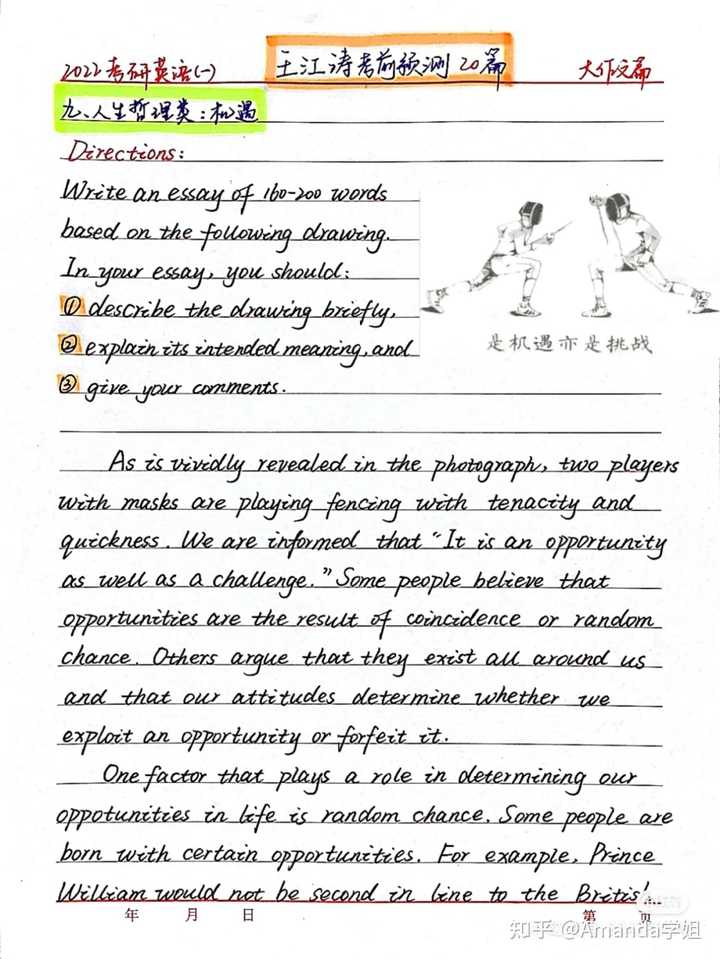 2022考研英语(一)  王江涛考前预测20篇  大作文篇
九、人生哲理类:机遇
Directions:
Write an essay of 160-200 words
based on the following drawing.
In your essay, you should:
① describe the drawing briefly,
② explain its intended meaning, and
③ give your comments.
是机遇亦是挑战
As is vividly revealed in the photograph, two players
with masks are playing fencing with tenacity and
quickness. We are informed that "It is an opportunity
as well as a challenge." Some people believe that
opportunities are the result of coincidence or random
chance. Others argue that they exist all around us
and that our attitudes determine whether we
exploit an opportunity or forfeit it.
One factor that plays a role in determining our
oppotunities in life is random chance. Some people are
born with certain opportunities. For example, Prince
William would not be second in line to the Britis
年 月 日 第 页
知乎 @Amanda学姐